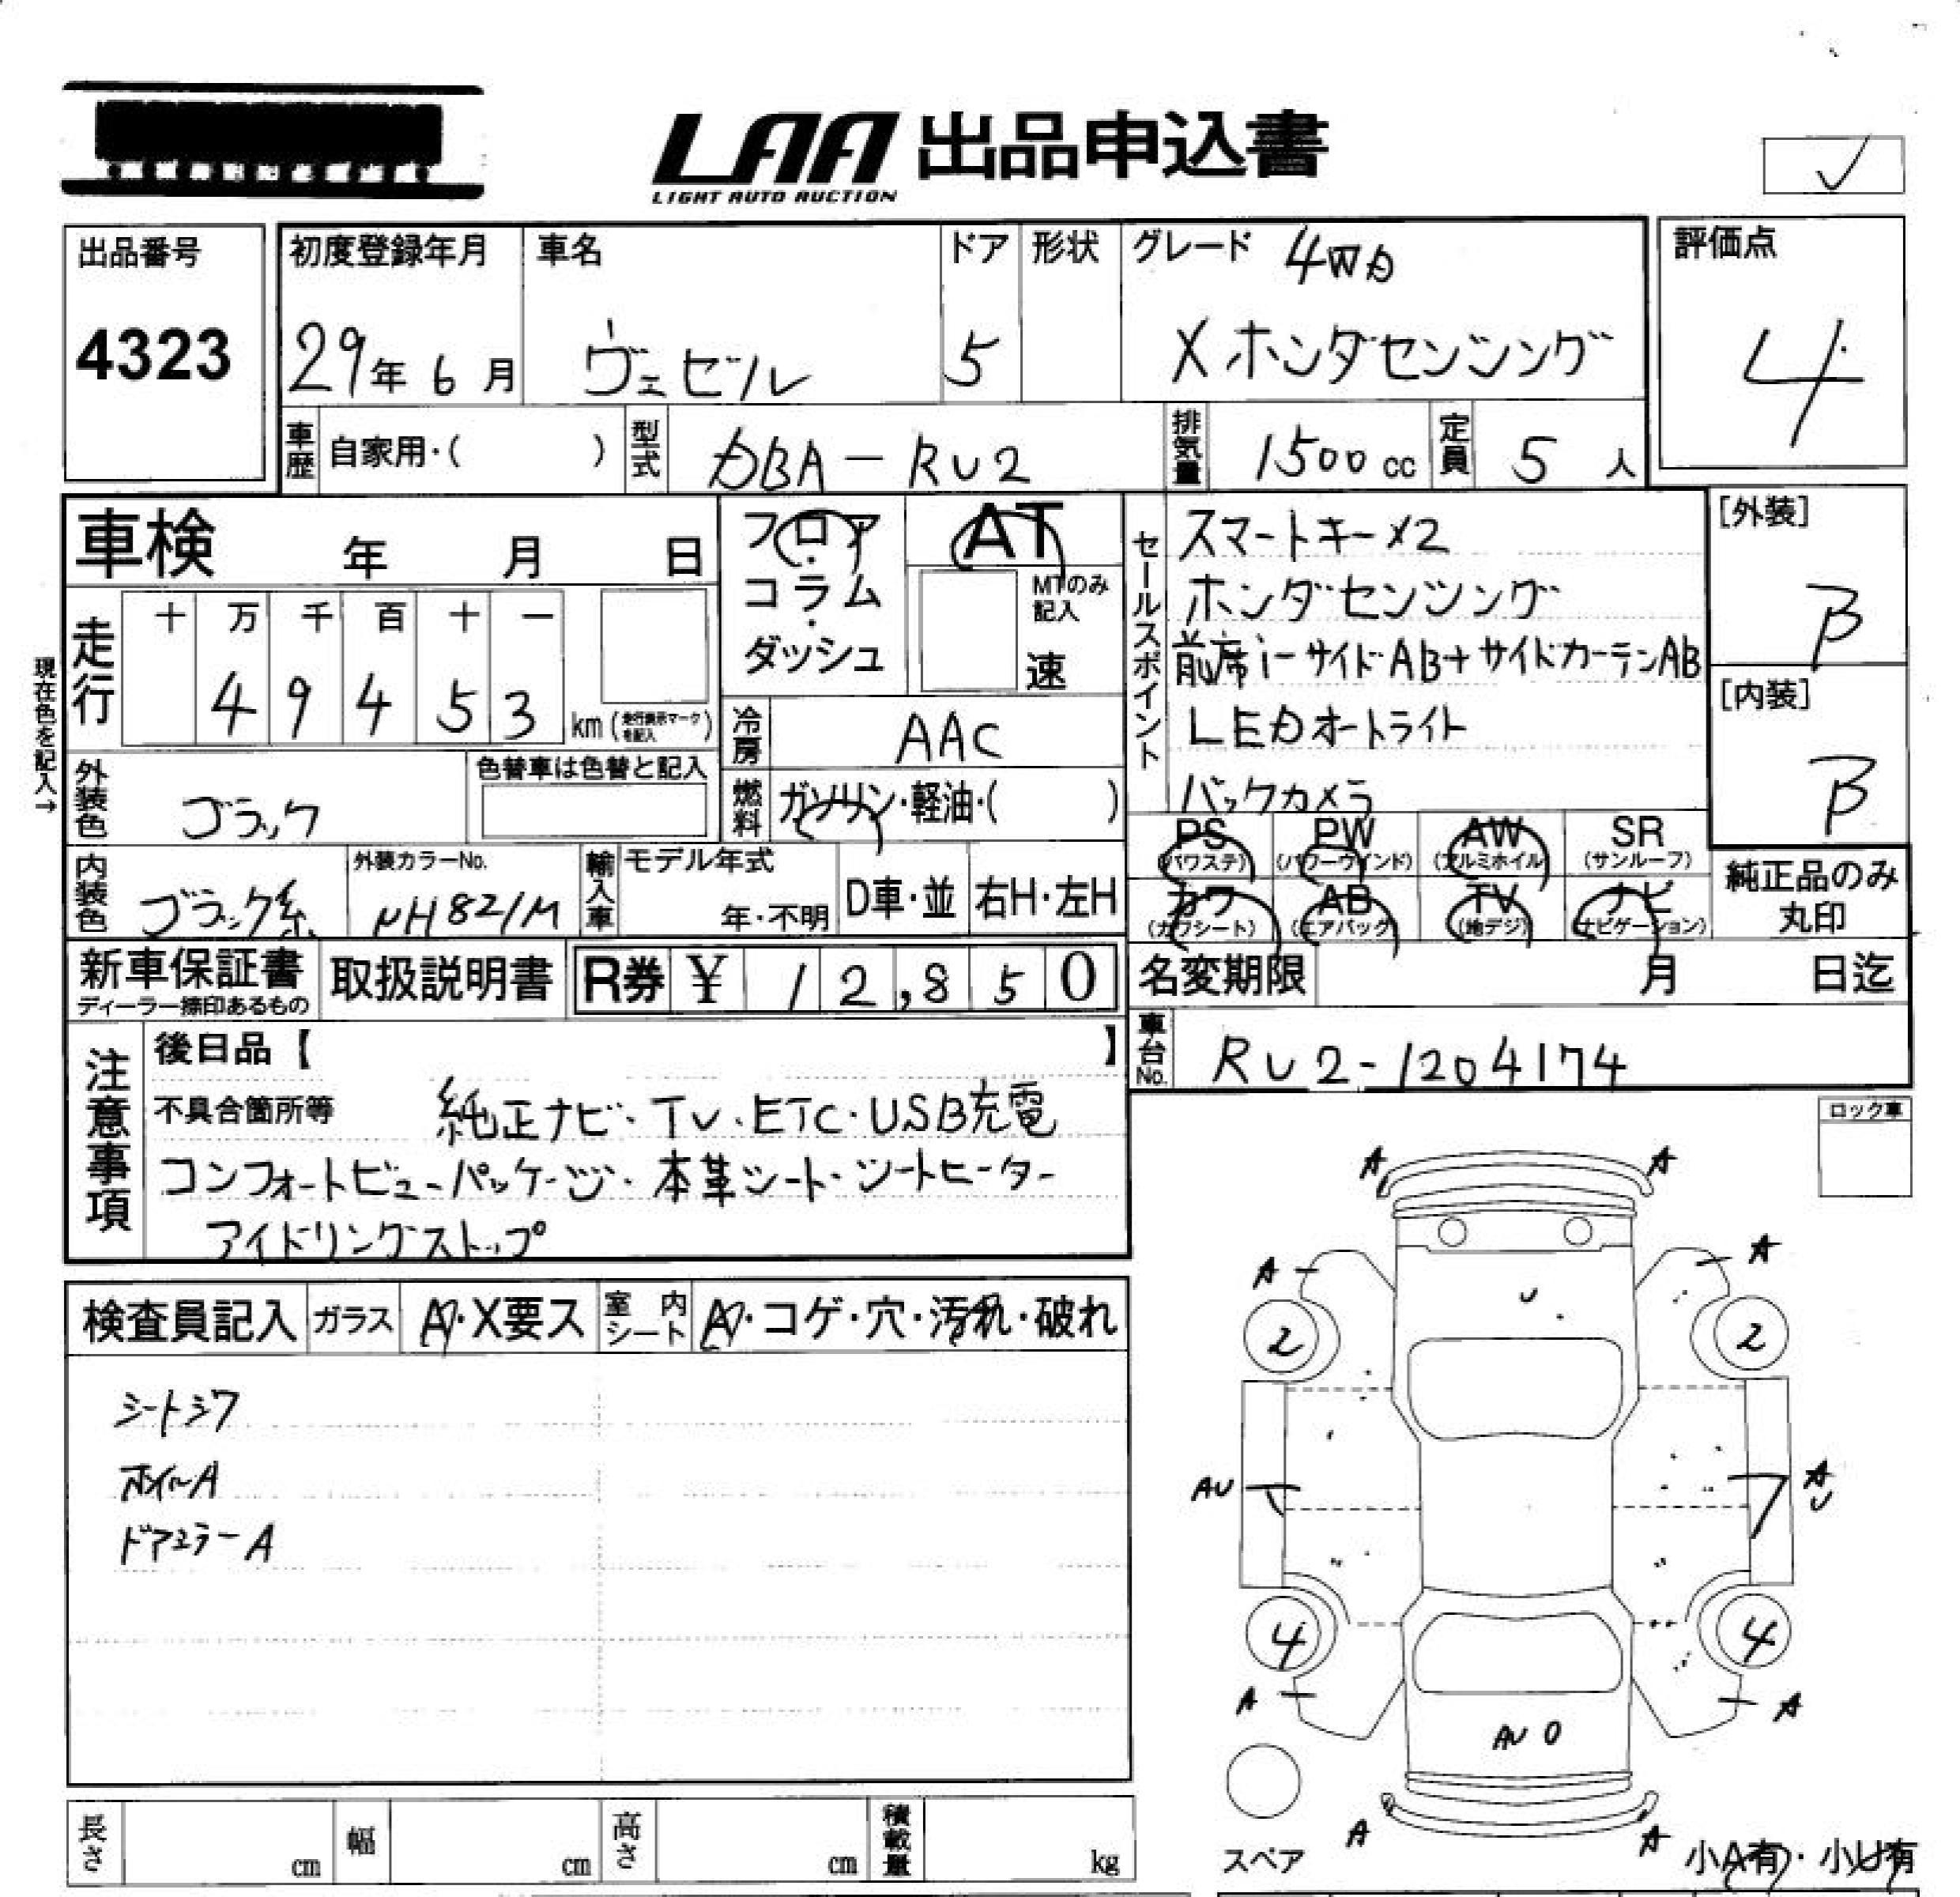 LAA 出品申込書
LIGHT AUTO AUCTION
出品番号
4323
初度登録年月
29年 6月
車名
ヴェゼル
ドア
5
形状
グレード 4WD
X ホンダセンシング
評価点
4
車歴 自家用・( )
型式 DBA-RU2
排気量 1500cc
定員 5人
車検 年 月 日
フロア・コラム・ダッシュ
AT
MTのみ記入
速
セールスポイント
スマートキー×2
ホンダセンシング
前席i-サイドAB+サイドカーテンAB
LEDオートライト
バックカメラ
[外装]
B
[内装]
B
現在色を記入→
走行
十 万 千 百 十 一
4 9 4 5 3 km (走行表示マークを記入)
冷房 AAC
燃料 ガソリン・軽油・( )
外装色 ブラック
色替車は色替と記入
内装色 ブラック系
外装カラーNo.
NH821M
輸入車 モデル年式
年・不明
D車・並 右H・左H
PS (パワステ)
PW (パワーウインド)
AW (アルミホイル)
SR (サンルーフ)
カワ (カワシート)
AB (エアバッグ)
TV (地デジ)
ナビ (ナビゲーション)
純正品のみ
丸印
新車保証書
ディーラー捺印あるもの
取扱説明書
R券 ¥ 12,850
名変期限 月 日迄
車台No. RU2-1204174
注意事項
後日品【 】
不具合箇所等 純正ナビ・TV・ETC・USB充電
コンフォートビューパッケージ・本革シート・シートヒーター
アイドリングストップ
ロック車
検査員記入 ガラス A・X要ス 室内シート A・コゲ・穴・汚れ・破れ
シートシワ
ホイルA
ドアミラーA
A A
A A
U
2 2
AU AU
4 4
A A
AU 0
A A
スペア
小A有・小U有
長さ cm 幅 cm 高さ cm 積載量 kg